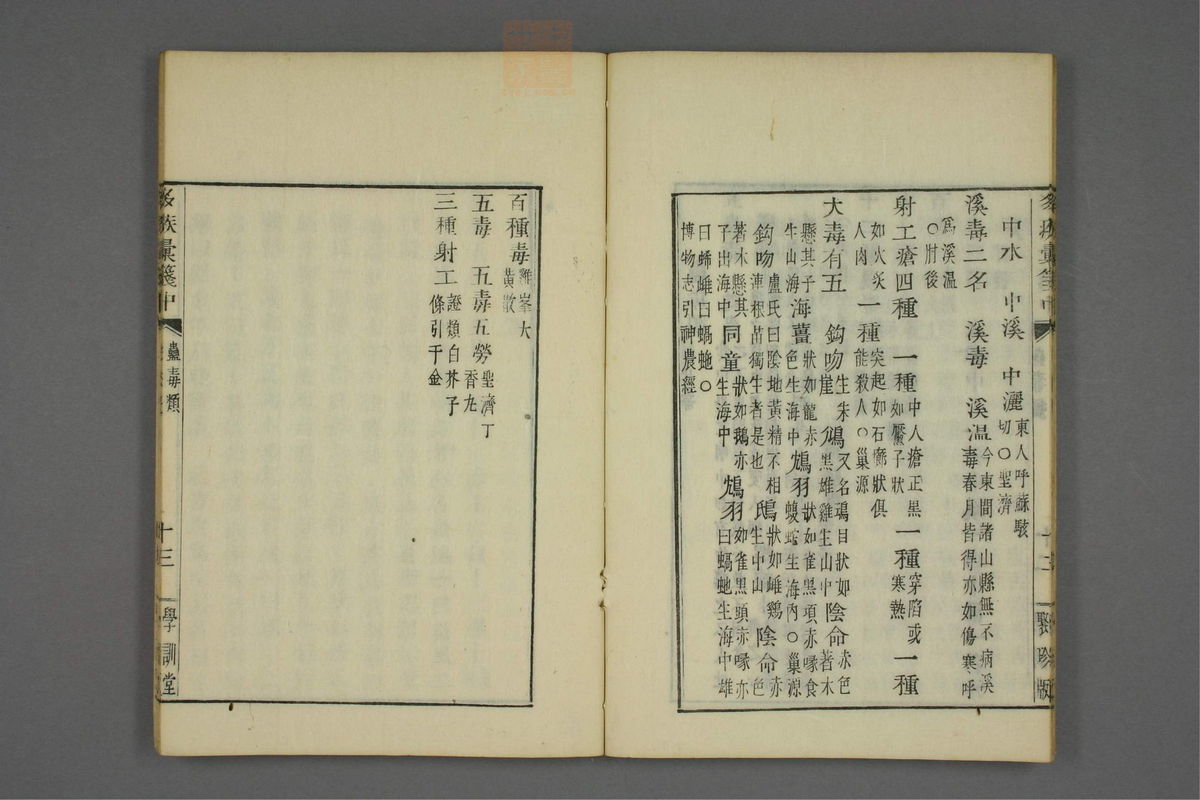 中水　中溪　中灑東人呼蘇駭切○聖濟
溪毒二名　溪毒中溪溫今東間諸山縣無不病溪毒春月皆得亦如傷寒呼
爲溪溫○肘後
射工瘡四種　一種中人瘡正黑如黶子狀一種穿陷或寒熱一種
如火炙人肉一種突起如石癤狀俱能殺人○巢源
大毒有五　鈎吻生朱崖鴆又名鴆目狀如黑雄雞生山中陰命赤色著木
懸其子生山海海薑狀如龍赤色生海中鴆羽狀如雀黑項赤喙食蝮蛇生海內○巢源
鈎吻盧氏曰陰地黃精不相連根苗獨生者是也鴆狀如雌鷄生中山陰命赤色
著木懸其子出海中同童狀如鵝亦生海中鴆羽如雀黑頭赤喙亦曰蝎虵生海中雄
曰蛷雌曰蝎虵○
博物志引神農經
蟲毒類
聚珍版
百種毒雞峯大黃散
五毒　五毒五勞聖濟丁香丸
三種射工證類白芥子條引千金
蟲毒類
十三
學訓堂